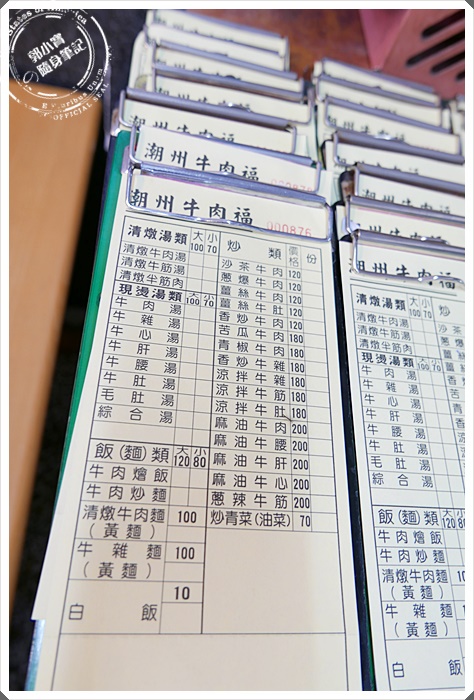 郭小寶
隨身筆記
OFFICIAL SEAL
潮州牛肉福
潮州牛肉福
潮州牛肉福 000876
清燉湯類 大100 小70
清燉牛肉湯
清燉牛筋湯
清燉半筋肉
現燙湯類 大100 小70
牛肉湯
牛雜湯
牛心湯
牛肝湯
牛腰湯
牛肚湯
毛肚湯
綜合湯
飯(麵)類 大120 小80
牛肉燴飯
牛肉炒麵
清燉牛肉麵(黃麵) 100
牛雜麵(黃麵) 100
白飯 10
炒類 價格 份
沙茶牛肉 120
蔥爆牛肉 120
薑絲牛肉 120
薑絲牛肚 120
香炒牛肉 120
苦瓜牛肉 180
青椒牛肉 180
香炒牛雜 180
涼拌牛雜 180
涼拌牛筋 180
涼拌牛肚 180
麻油牛肉 200
麻油牛腰 200
麻油牛肝 200
麻油牛心 200
蔥辣牛筋 200
炒青菜(油菜) 70
潮州牛肉福
清燉湯類 大100 小70
清燉牛肉湯
清燉牛筋湯
清燉半筋肉
現燙湯類 大100 小70
牛肉湯
牛雜湯
牛心湯
牛肝湯
牛腰湯
牛肚湯
毛肚湯
綜合湯
飯(麵)類 大120 小80
牛肉燴飯
牛肉炒麵
清燉牛肉麵(黃麵) 100
牛雜麵(黃麵) 100
白飯